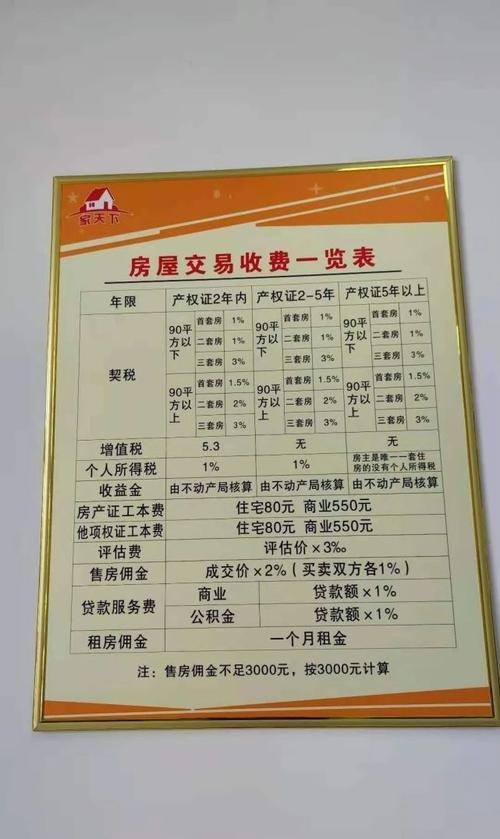 家天下
房屋交易收费一览表
年限 产权证2年内 产权证2-5年 产权证5年以上
契税
90平方以下 首套房 1% 90平方以下 首套房 1% 90平方以下 首套房 1%
二套房 1% 二套房 1% 二套房 1%
三套房 3% 三套房 3% 三套房 3%
90平方以上 首套房 1.5% 90平方以上 首套房 1.5% 90平方以上 首套房 1.5%
二套房 2% 二套房 2% 二套房 2%
三套房 3% 三套房 3% 三套房 3%
增值税 5.3 无 无
个人所得税 1% 1% 房主是唯一一套住房的没有个人所得税
收益金 由不动产局核算 由不动产局核算 由不动产局核算
房产证工本费 住宅80元 商业550元
他项权证工本费 住宅80元 商业550元
评估费 评估价×3‰
售房佣金 成交价×2%(买卖双方各1%)
贷款服务费 商业 贷款额×1%
公积金 贷款额×1%
租房佣金 一个月租金
注：售房佣金不足3000元，按3000元计算